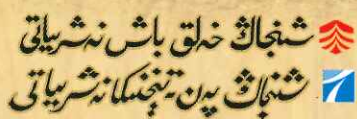 شىنجاڭ خەلق باش نەشرىياتى
شىنجاڭ پەن-تېخنىكا نەشرىياتى